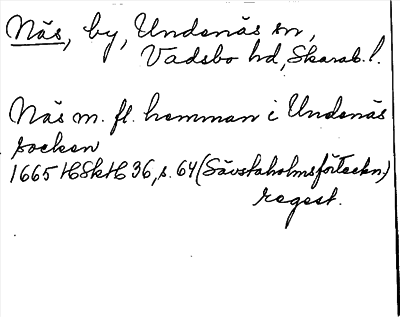 Näs, by, Undenäs sn,
Vadsbo hd, Skarab. l.
Näs m. fl. hemman i Undenäs
socken
1665 HSkH 36, s. 64 (Sävstaholmsförteckn.)
regest.